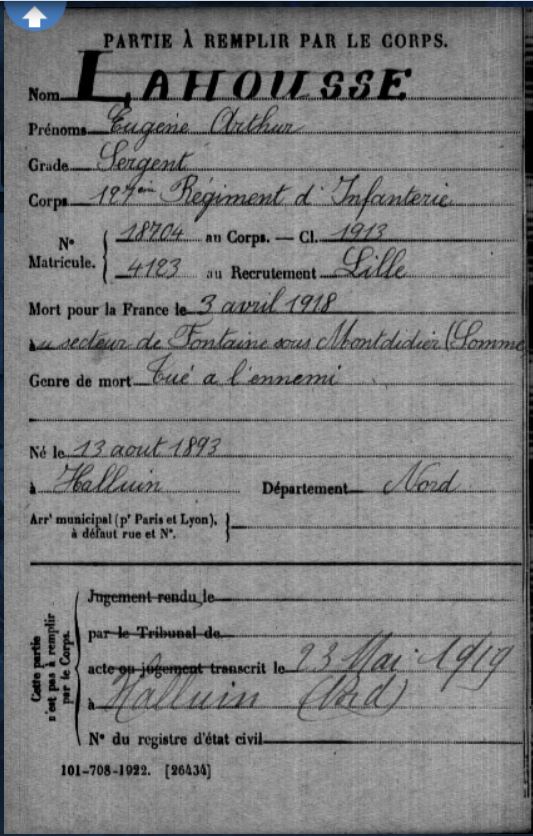 PARTIE À REMPLIR PAR LE CORPS.
Nom LAHOUSSE
Prénoms Eugène Arthur
Grade Sergent
Corps 127ème Régiment d'Infanterie
N° Matricule. { 18704 au Corps. — Cl. 1913
4123 au Recrutement Lille
Mort pour la France le 3 avril 1918
au secteur de Fontaine sous Montdidier (Somme
Genre de mort Tué a l'ennemi
Né le 13 aout 1893
à Halluin Département Nord
Arrt municipal (pr Paris et Lyon), }
à défaut rue et N°.
Cette partie n'est pas à remplir par le Corps.
Jugement rendu le
par le Tribunal de
acte ou jugement transcrit le 23 Mai 1919
à Halluin (Nord)
N° du registre d'état civil
101-708-1922. [26434]